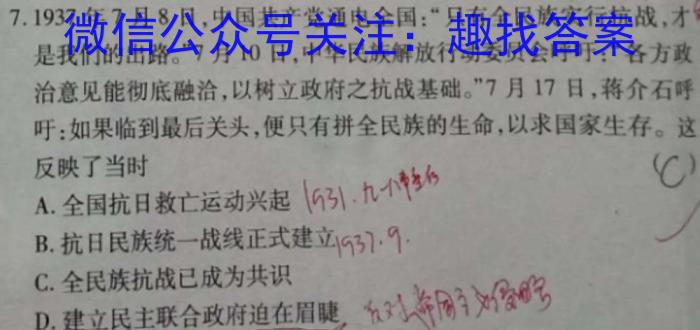 7.1937年7月8日,中国共产党通电全国:“只有全民族实行抗战,才
微信公众号关注：趣找答案
是我们的出路。”7月10日,中华民族解放行动委员会呼吁:“各方政
治意见能彻底融洽,以树立政府之抗战基础。”7月17日,蒋介石呼
吁:如果临到最后关头,便只有拼全民族的生命,以求国家生存。这
反映了当时
(C)
A.全国抗日救亡运动兴起 1931.九一八事变后
B.抗日民族统一战线正式建立 1937.9.
C.全民族抗战已成为共识
D.建立民主联合政府迫在眉睫